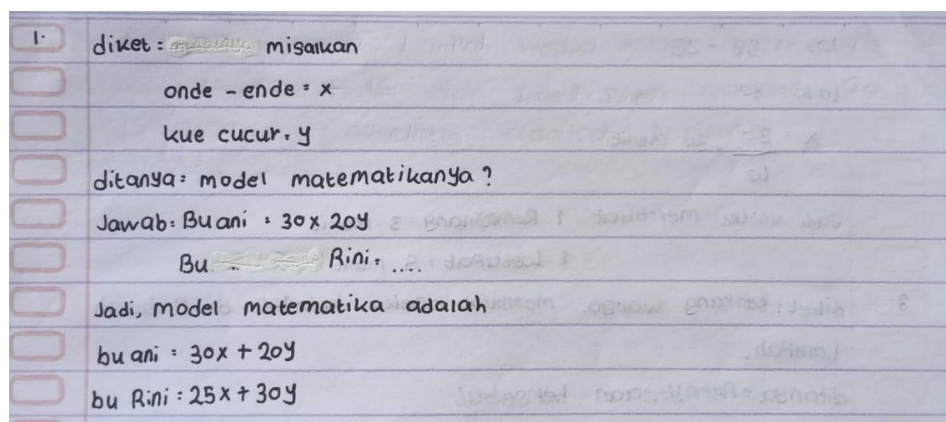 1. diket = misalkan
onde - ende = x
kue cucur = y
ditanya = model matematikanya ?
Jawab = Bu ani = 30x, 20y
Bu Rini = ....
Jadi, model matematika adalah
bu ani = 30x + 20y
bu Rini = 25x + 30y